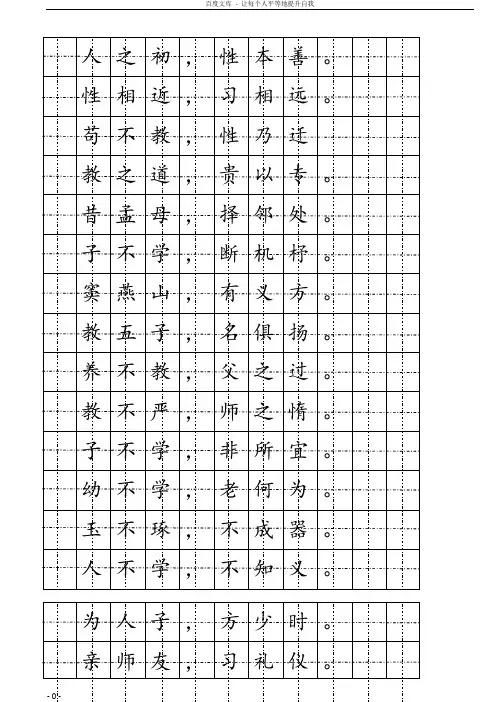 百度文库 - 让每个人平等地提升自我
人之初，性本善。
性相近，习相远。
苟不教，性乃迁
教之道，贵以专。
昔孟母，择邻处。
子不学，断机杼。
窦燕山，有义方。
教五子，名俱扬。
养不教，父之过。
教不严，师之惰。
子不学，非所宜。
幼不学，老何为。
玉不琢，不成器。
人不学，不知义。
为人子，方少时。
亲师友，习礼仪。
- 0 -